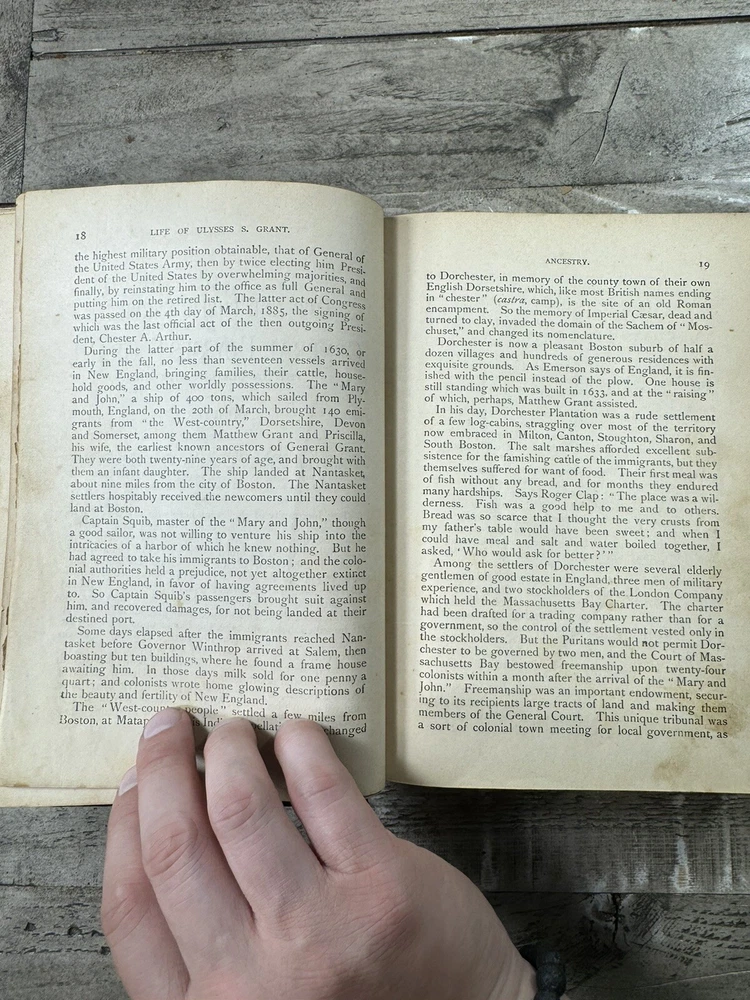 18
LIFE OF ULYSSES S. GRANT.
the highest military position obtainable, that of General of
the United States Army, then by twice electing him Presi-
dent of the United States by overwhelming majorities, and
finally, by reinstating him to the office as full General and
putting him on the retired list. The latter act of Congress
was passed on the 4th day of March, 1885, the signing of
which was the last official act of the then outgoing Presi-
dent, Chester A. Arthur.
During the latter part of the summer of 1630, or
early in the fall, no less than seventeen vessels arrived
in New England, bringing families, their cattle, house-
hold goods, and other worldly possessions. The "Mary
and John," a ship of 400 tons, which sailed from Ply-
mouth, England, on the 20th of March, brought 140 emi-
grants from "the West-country," Dorsetshire, Devon
and Somerset, among them Matthew Grant and Priscilla,
his wife, the earliest known ancestors of General Grant.
They were both twenty-nine years of age, and brought with
them an infant daughter. The ship landed at Nantasket,
about nine miles from the city of Boston. The Nantasket
settlers hospitably received the newcomers until they could
land at Boston.
Captain Squib, master of the "Mary and John," though
a good sailor, was not willing to venture his ship into the
intricacies of a harbor of which he knew nothing. But he
had agreed to take his immigrants to Boston; and the colo-
nial authorities held a prejudice, not yet altogether extinct
in New England, in favor of having agreements lived up
to. So Captain Squib's passengers brought suit against
him, and recovered damages, for not being landed at their
destined port.
Some days elapsed after the immigrants reached Nan-
tasket before Governor Winthrop arrived at Salem, then
boasting but ten buildings, where he found a frame house
awaiting him. In those days milk sold for one penny a
quart; and colonists wrote home glowing descriptions of
the beauty and fertility of New England.
The "West-country people" settled a few miles from
Boston, at Matap Indi ellati changed
ANCESTRY.
19
to Dorchester, in memory of the county town of their own
English Dorsetshire, which, like most British names ending
in "chester" (castra, camp), is the site of an old Roman
encampment. So the memory of Imperial Cæsar, dead and
turned to clay, invaded the domain of the Sachem of "Mos-
chuset," and changed its nomenclature.
Dorchester is now a pleasant Boston suburb of half a
dozen villages and hundreds of generous residences with
exquisite grounds. As Emerson says of England, it is fin-
ished with the pencil instead of the plow. One house is
still standing which was built in 1633, and at the "raising"
of which, perhaps, Matthew Grant assisted.
In his day, Dorchester Plantation was a rude settlement
of a few log-cabins, straggling over most of the territory
now embraced in Milton, Canton, Stoughton, Sharon, and
South Boston. The salt marshes afforded excellent sub-
sistence for the famishing cattle of the immigrants, but they
themselves suffered for want of food. Their first meal was
of fish without any bread, and for months they endured
many hardships. Says Roger Clap: "The place was a wil-
derness. Fish was a good help to me and to others.
Bread was so scarce that I thought the very crusts from
my father's table would have been sweet; and when I
could have meal and salt and water boiled together, I
asked, 'Who would ask for better?'"
Among the settlers of Dorchester were several elderly
gentlemen of good estate in England, three men of military
experience, and two stockholders of the London Company
which held the Massachusetts Bay Charter. The charter
had been drafted for a trading company rather than for a
government, so the control of the settlement vested only in
the stockholders. But the Puritans would not permit Dor-
chester to be governed by two men, and the Court of Mas-
sachusetts Bay bestowed freemanship upon twenty-four
colonists within a month after the arrival of the "Mary and
John." Freemanship was an important endowment, secur-
ing to its recipients large tracts of land and making them
members of the General Court. This unique tribunal was
a sort of colonial town meeting for local government, as